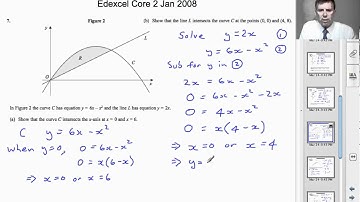 Edexcel Core 2 Jan 2008
7.
Figure 2
y
L
R
C
O
x
In Figure 2 the curve C has equation y = 6x - x² and the line L has equation y = 2x.
(a) Show that the curve C intersects the x-axis at x = 0 and x = 6.
C y = 6x - x²
When y=0, 0 = 6x - x²
0 = x(6-x)
⇒ x=0 or x=6
(b) Show that the line L intersects the curve C at the points (0, 0) and (4, 8).
Solve y = 2x ①
y = 6x - x² ②
Sub for y in ②
2x = 6x - x²
0 = 6x - x² - 2x
0 = 4x - x²
0 = x(4-x)
⇒ x=0 or x=4
⇒ y=